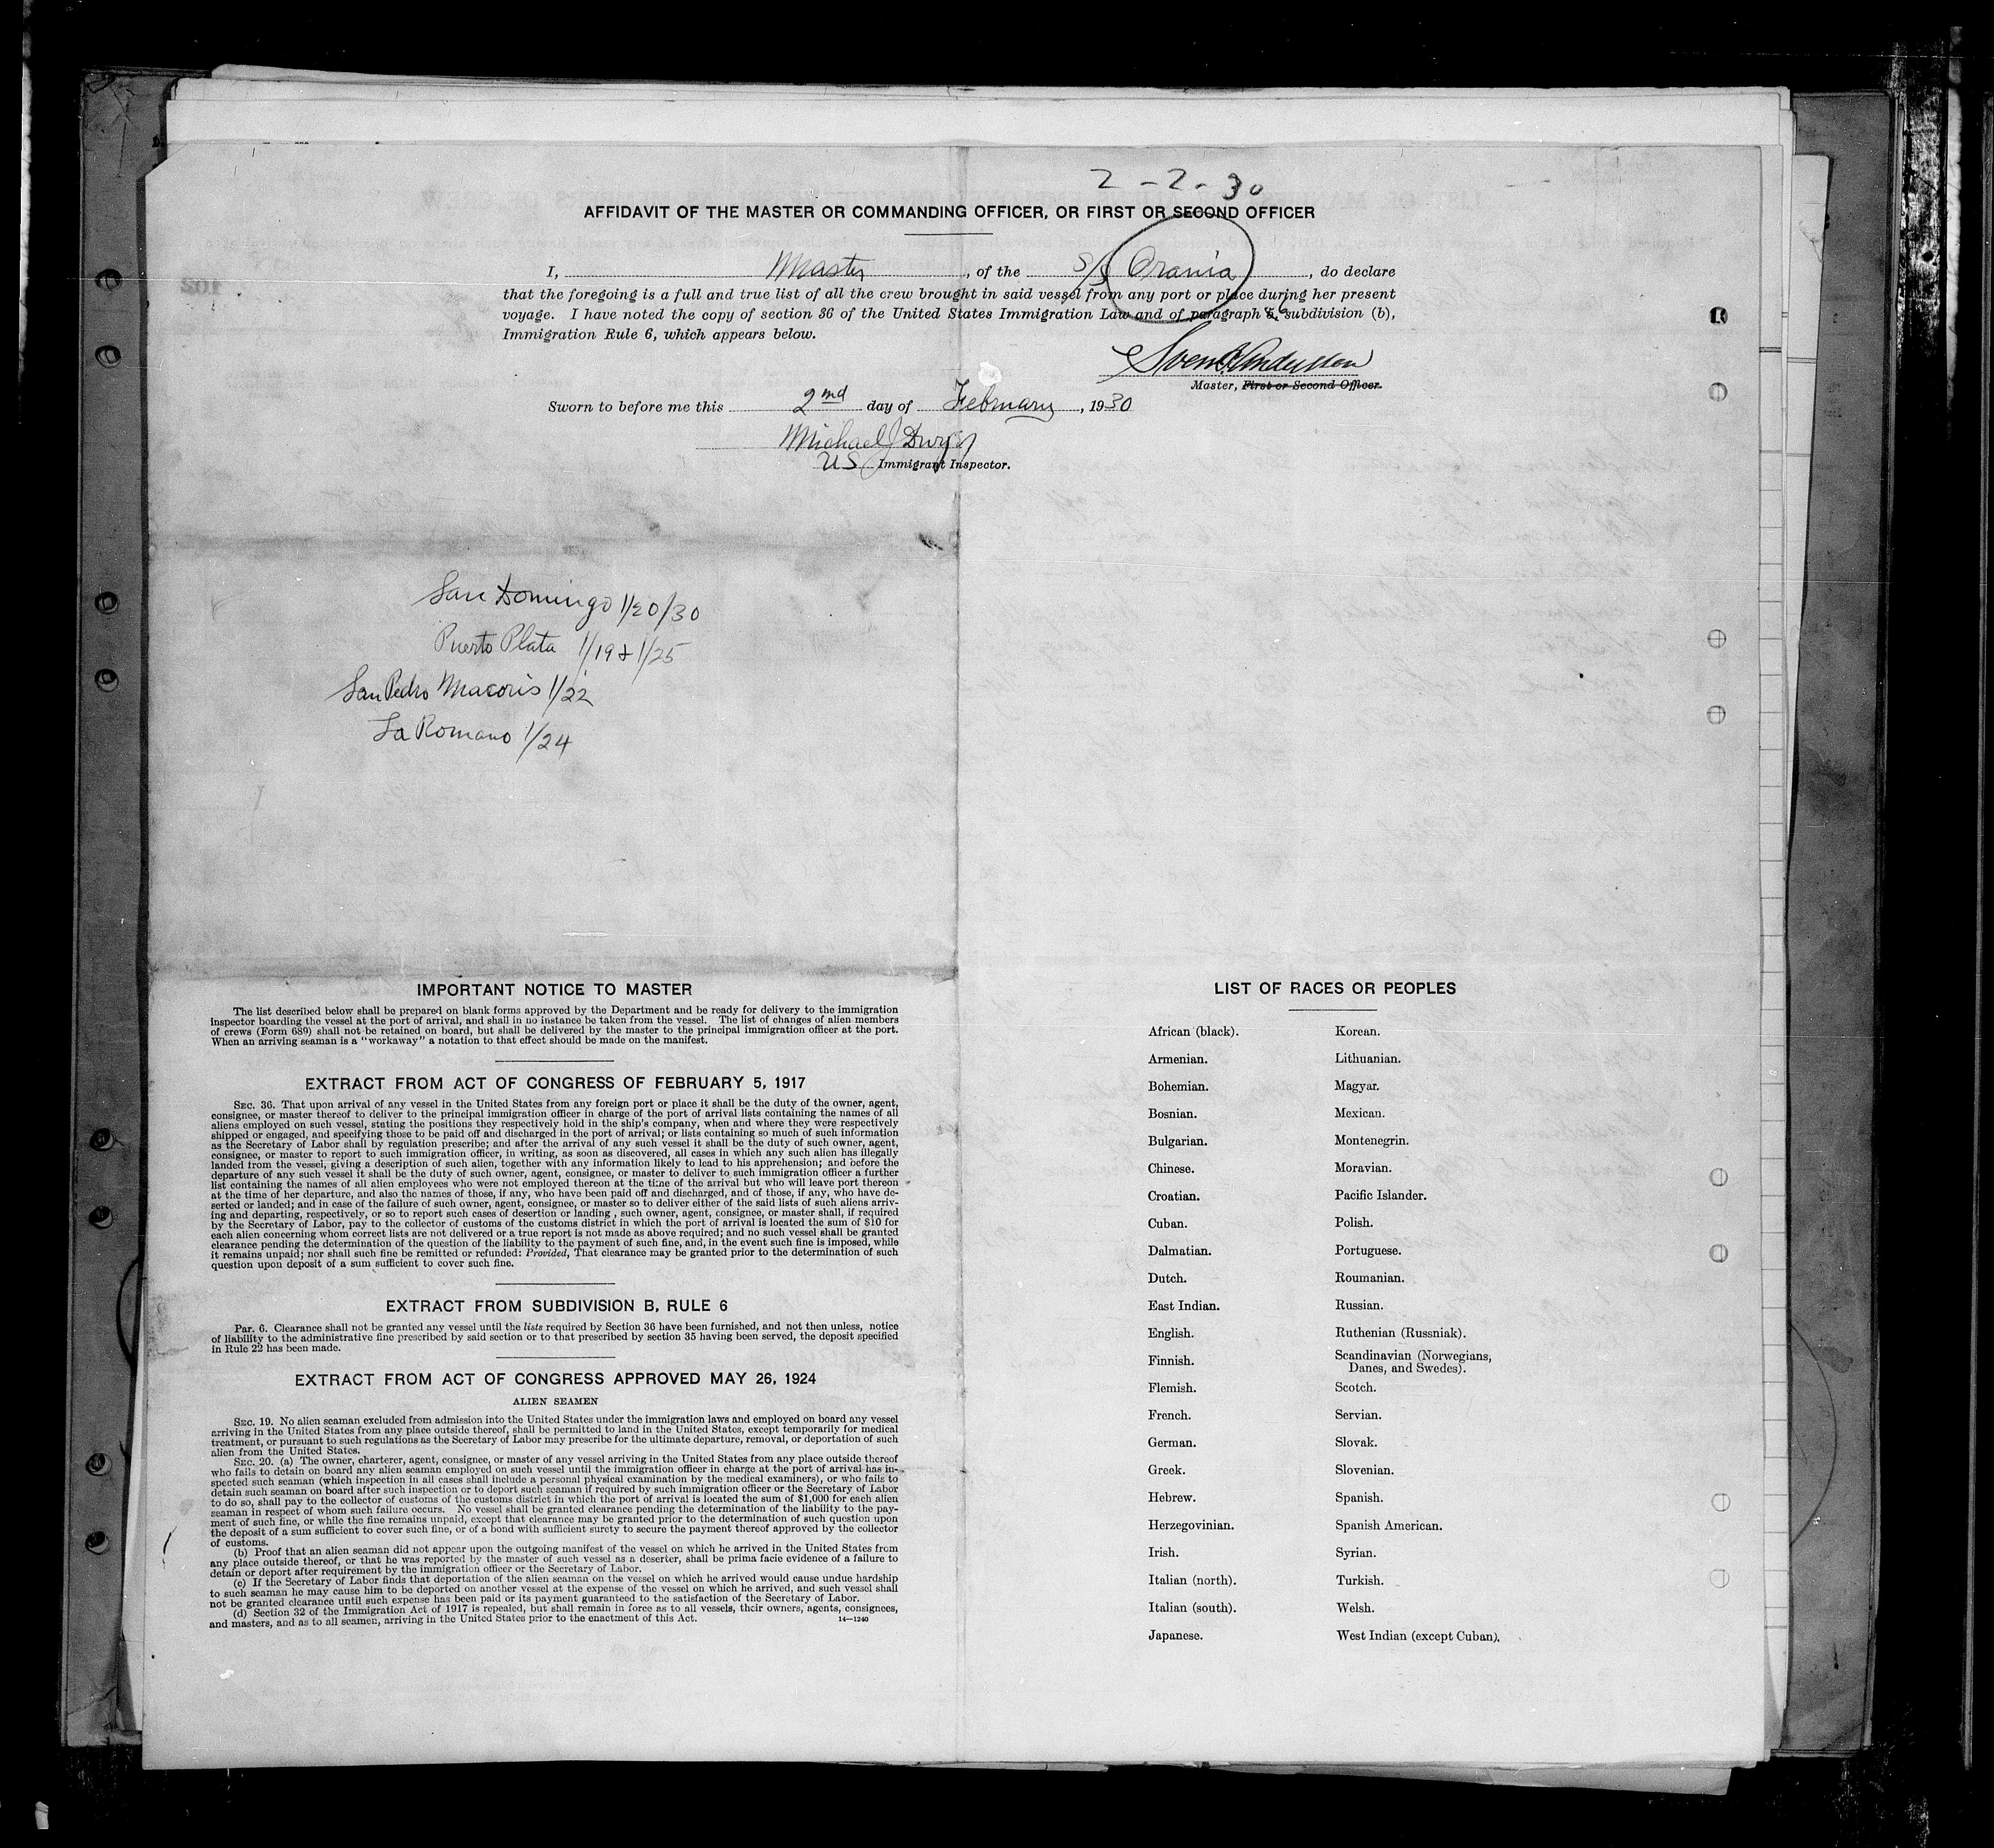 2-2-30
AFFIDAVIT OF THE MASTER OR COMMANDING OFFICER, OR FIRST OR SECOND OFFICER
I, Master, of the S/S Orania, do declare
that the foregoing is a full and true list of all the crew brought in said vessel from any port or place during her present
voyage. I have noted the copy of section 36 of the United States Immigration Law and of paragraph 6, subdivision (b),
Immigration Rule 6, which appears below.
Master, First or Second Officer.
Sworn to before me this 2nd day of February, 1930
Michael J
US Immigrant Inspector.
San Domingo 1/20/30
Puerto Plata 1/19 & 1/25
San Pedro Macoris 1/22
La Romano 1/24
IMPORTANT NOTICE TO MASTER
The list described below shall be prepared on blank forms approved by the Department and be ready for delivery to the immigration
inspector boarding the vessel at the port of arrival, and shall in no instance be taken from the vessel. The list of changes of alien members
of crews (Form 689) shall not be retained on board, but shall be delivered by the master to the principal immigration officer at the port.
When an arriving seaman is a "workaway" a notation to that effect should be made on the manifest.
EXTRACT FROM ACT OF CONGRESS OF FEBRUARY 5, 1917
SEC. 36. That upon arrival of any vessel in the United States from any foreign port or place it shall be the duty of the owner, agent,
consignee, or master thereof to deliver to the principal immigration officer in charge of the port of arrival lists containing the names of all
aliens employed on such vessel, stating the positions they respectively hold in the ship's company, when and where they were respectively
shipped or engaged, and specifying those to be paid off and discharged in the port of arrival; or lists containing so much of such information
as the Secretary of Labor shall by regulation prescribe; and after the arrival of any such vessel it shall be the duty of such owner, agent,
consignee, or master to report to such immigration officer, in writing, as soon as discovered, all cases in which any such alien has illegally
landed from the vessel, giving a description of such alien, together with any information likely to lead to his apprehension; and before the
departure of any such vessel it shall be the duty of such owner, agent, consignee, or master to deliver to such immigration officer a further
list containing the names of all alien employees who were not employed thereon at the time of the arrival but who will leave port thereon
at the time of her departure, and also the names of those, if any, who have been paid off and discharged, and of those, if any, who have de-
serted or landed; and in case of the failure of such owner, agent, consignee, or master so to deliver either of the said lists of such aliens arriv-
ing and departing, respectively, or so to report such cases of desertion or landing, such owner, agent, consignee, or master shall, if required
by the Secretary of Labor, pay to the collector of customs of the customs district in which the port of arrival is located the sum of $10 for
each alien concerning whom correct lists are not delivered or a true report is not made as above required; and no such vessel shall be granted
clearance pending the determination of the question of the liability to the payment of such fine, and, in the event such fine is imposed, while
it remains unpaid; nor shall such fine be remitted or refunded: Provided, That clearance may be granted prior to the determination of such
question upon deposit of a sum sufficient to cover such fine.
EXTRACT FROM SUBDIVISION B, RULE 6
Par. 6. Clearance shall not be granted any vessel until the lists required by Section 36 have been furnished, and not then unless, notice
of liability to the administrative fine prescribed by said section or to that prescribed by section 35 having been served, the deposit specified
in Rule 22 has been made.
EXTRACT FROM ACT OF CONGRESS APPROVED MAY 26, 1924
ALIEN SEAMEN
SEC. 19. No alien seaman excluded from admission into the United States under the immigration laws and employed on board any vessel
arriving in the United States from any place outside thereof, shall be permitted to land in the United States, except temporarily for medical
treatment, or pursuant to such regulations as the Secretary of Labor may prescribe for the ultimate departure, removal, or deportation of such
alien from the United States.
SEC. 20. (a) The owner, charterer, agent, consignee, or master of any vessel arriving in the United States from any place outside thereof
who fails to detain on board any alien seaman employed on such vessel until the immigration officer in charge at the port of arrival has in-
spected such seaman (which inspection in all cases shall include a personal physical examination by the medical examiners), or who fails to
detain such seaman on board after such inspection or to deport such seaman if required by such immigration officer or the Secretary of Labor
to do so, shall pay to the collector of customs of the customs district in which the port of arrival is located the sum of $1,000 for each alien
seaman in respect of whom such failure occurs. No vessel shall be granted clearance pending the determination of the liability to the pay-
ment of such fine, or while the fine remains unpaid, except that clearance may be granted prior to the determination of such question upon
the deposit of a sum sufficient to cover such fine, or of a bond with sufficient surety to secure the payment thereof approved by the collector
of customs.
(b) Proof that an alien seaman did not appear upon the outgoing manifest of the vessel on which he arrived in the United States from
any place outside thereof, or that he was reported by the master of such vessel as a deserter, shall be prima facie evidence of a failure to
detain or deport after requirement by the immigration officer or the Secretary of Labor.
(c) If the Secretary of Labor finds that deportation of the alien seaman on the vessel on which he arrived would cause undue hardship
to such seaman he may cause him to be deported on another vessel at the expense of the vessel on which he arrived, and such vessel shall
not be granted clearance until such expense has been paid or its payment guaranteed to the satisfaction of the Secretary of Labor.
(d) Section 32 of the Immigration Act of 1917 is repealed, but shall remain in force as to all vessels, their owners, agents, consignees,
and masters, and as to all seamen, arriving in the United States prior to the enactment of this Act.
14—1240
LIST OF RACES OR PEOPLES
African (black).
Armenian.
Bohemian.
Bosnian.
Bulgarian.
Chinese.
Croatian.
Cuban.
Dalmatian.
Dutch.
East Indian.
English.
Finnish.
Flemish.
French.
German.
Greek.
Hebrew.
Herzegovinian.
Irish.
Italian (north).
Italian (south).
Japanese.
Korean.
Lithuanian.
Magyar.
Mexican.
Montenegrin.
Moravian.
Pacific Islander.
Polish.
Portuguese.
Roumanian.
Russian.
Ruthenian (Russniak).
Scandinavian (Norwegians,
Danes, and Swedes).
Scotch.
Servian.
Slovak.
Slovenian.
Spanish.
Spanish American.
Syrian.
Turkish.
Welsh.
West Indian (except Cuban).